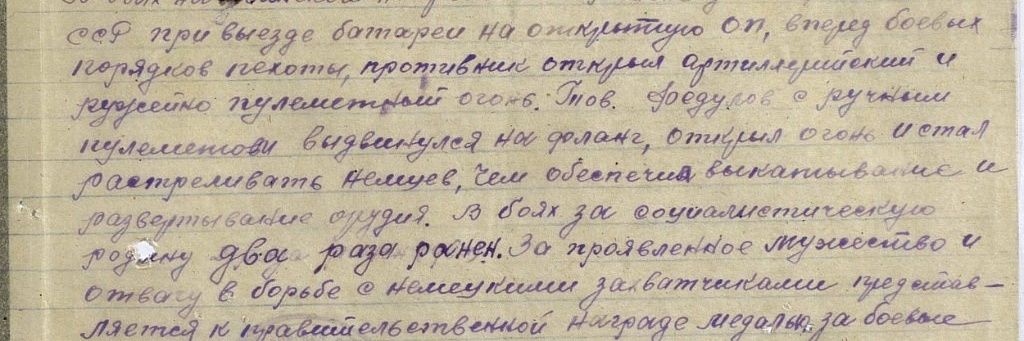 ССР при выезде батареи на открытую ОП, вперед боевых
порядков пехоты, противник открыл артиллерийский и
ружейно пулеметный огонь. Тов. Федулов с ручным
пулеметом выдвинулся на фланг, открыл огонь и стал
растреливать немцев, чем обеспечил выкатывание и
развертывание орудия. В боях за социалистическую
родину два раза ранен. За проявленное мужество и
отвагу в борьбе с немецкими захватчиками представ-
ляется к правительственной награде медалью за боевые